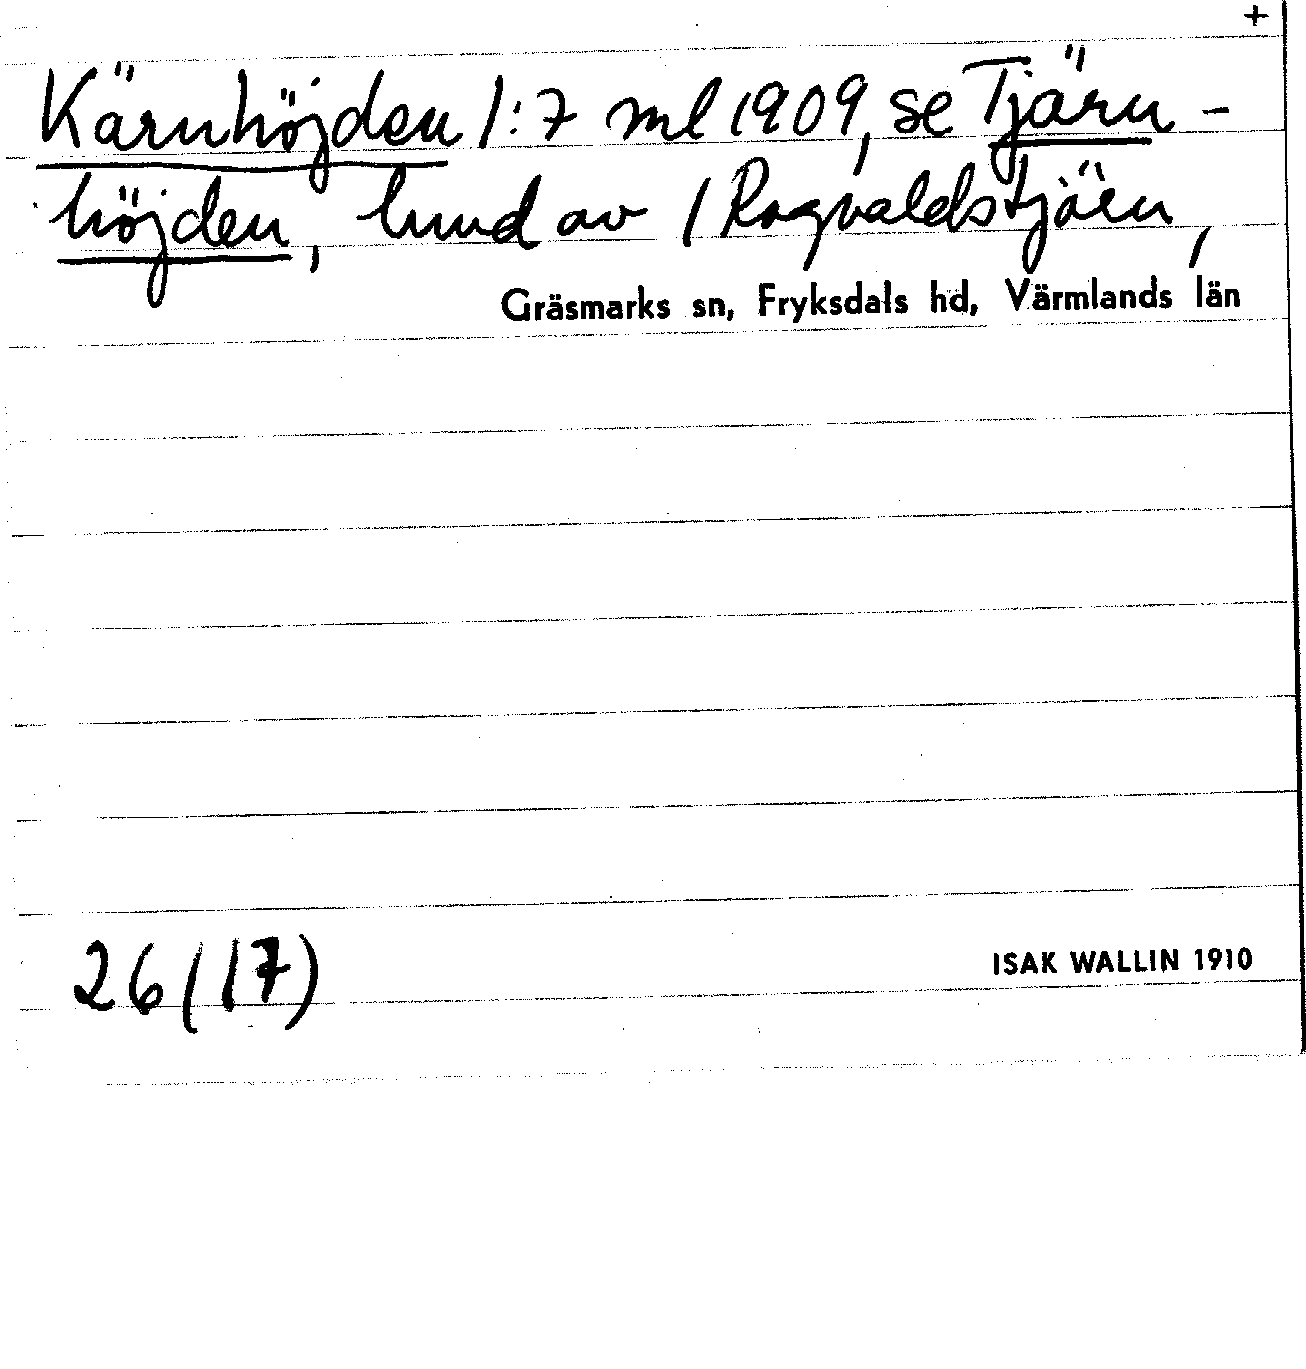 +
Kärnhöjden 1:7 ml 1909, se Tjärn-
höjden, lund av 1 Ragvaldstjärn,
Gräsmarks sn, Fryksdals hd, Värmlands län
26 (17)
ISAK WALLIN 1910